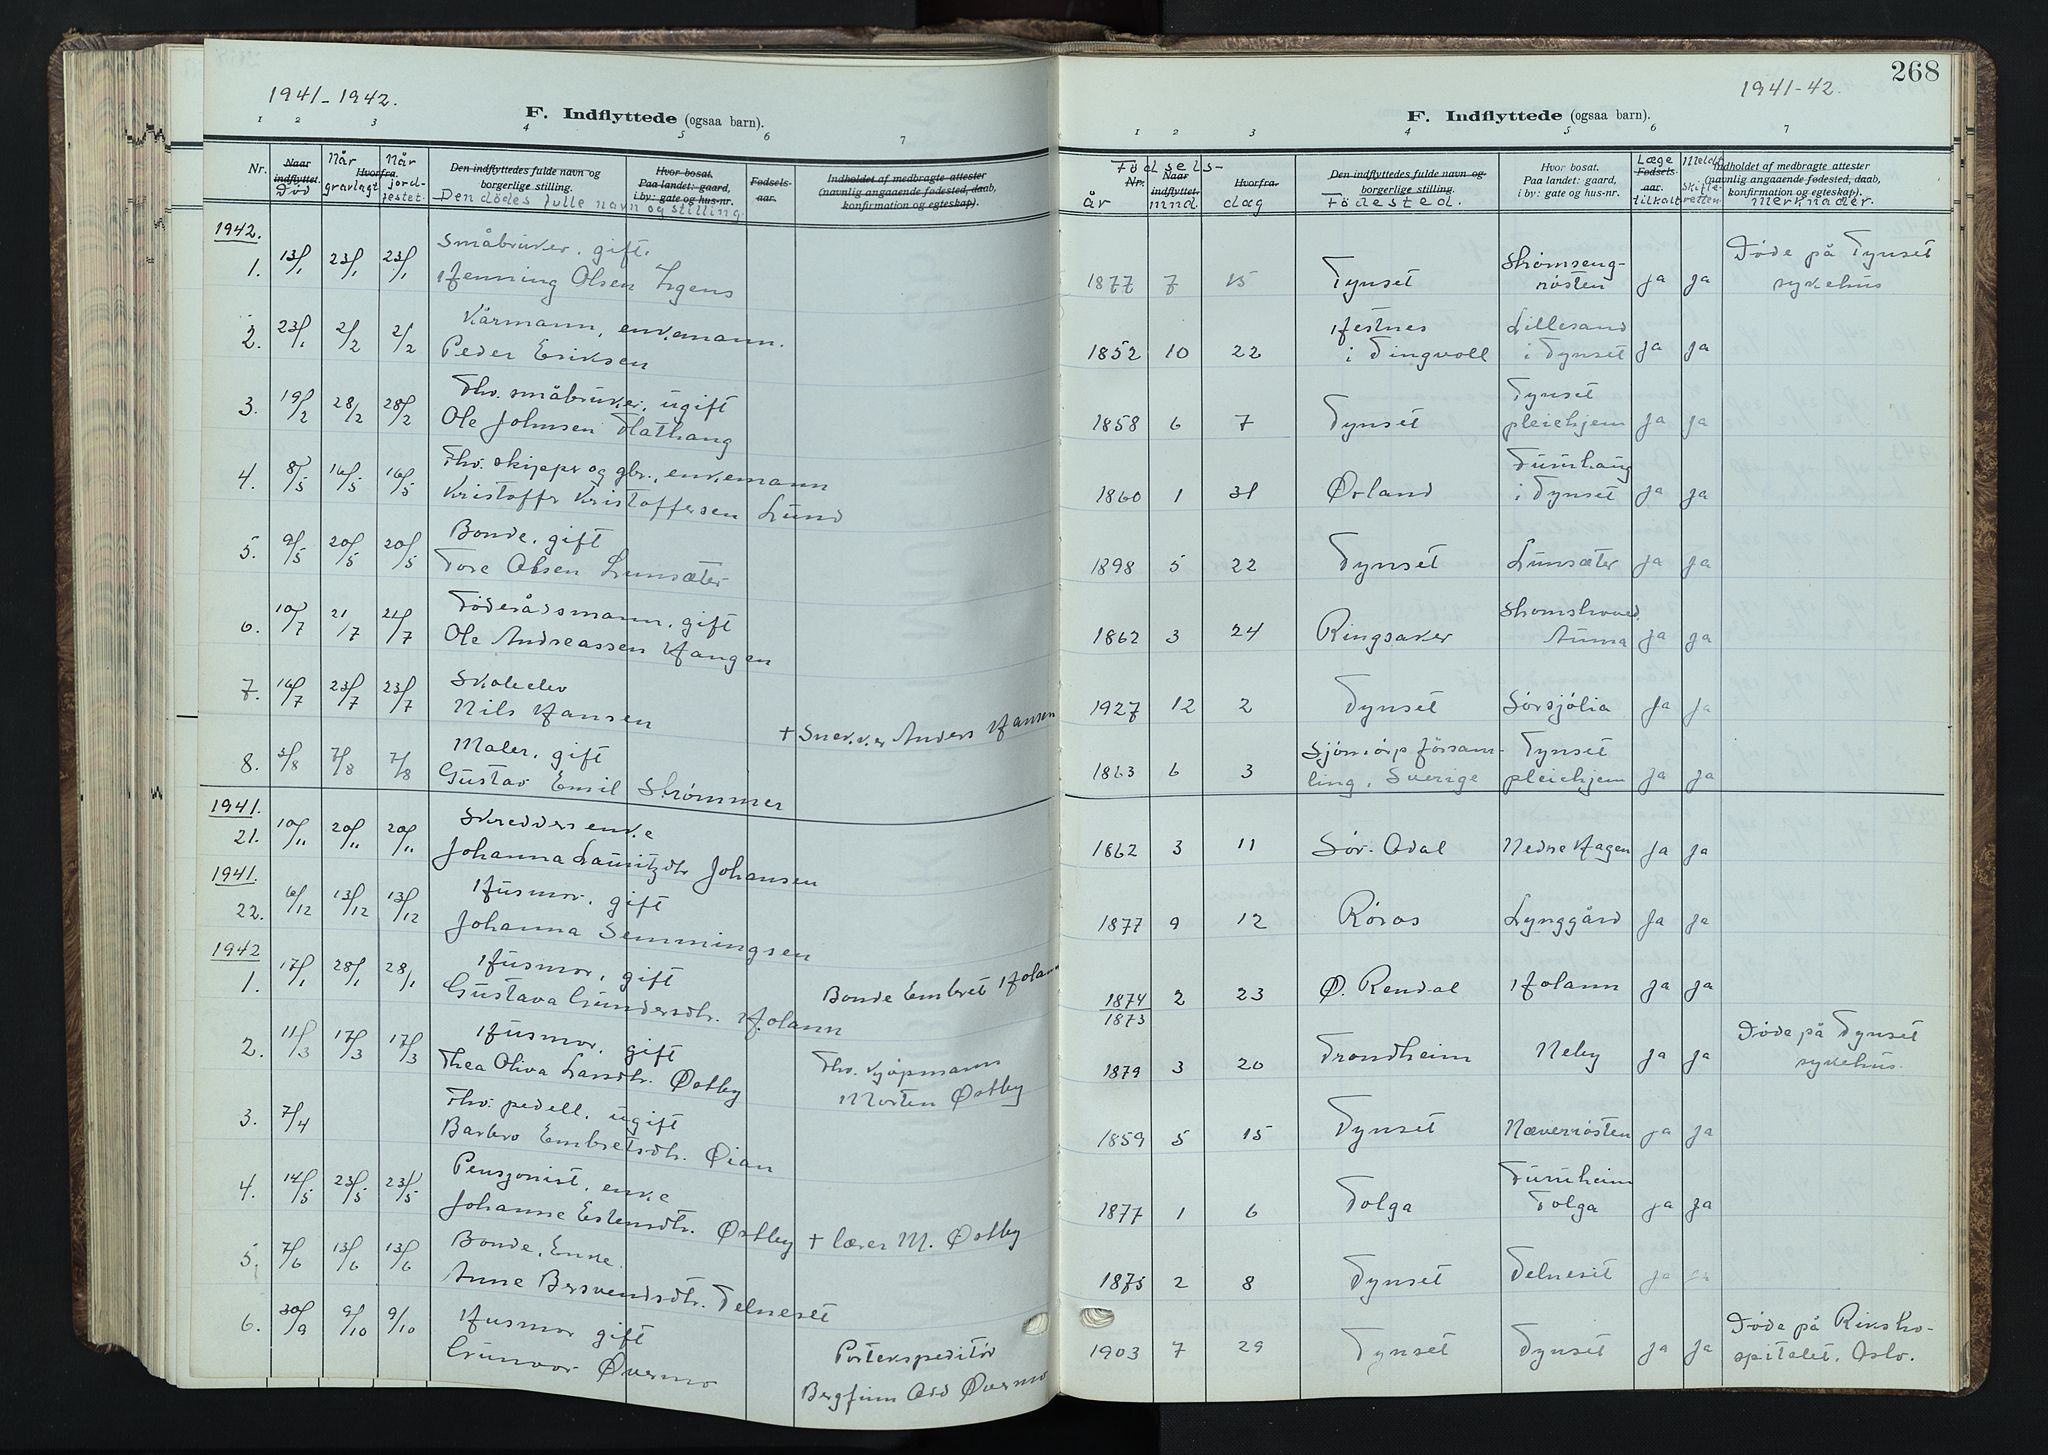 1941-1942.
F. Indflyttede (ogsaa barn).
1 2 3 4 5 6 7
Nr. Naar indflyttet. Død Når gravlagt Hvorfra. Når jord-festet.
Den indflyttedes fulde navn og borgerlige stilling.
Den dødes fulle navn og stilling
Hvor bosat. Paa landet: gaard, i by: gate og hus-nr.
Fødsels-aar.
Indholdet af medbragte attester (navnlig angaaende fødested, daab, konfirmation og egteskap).
1942.
Småbruker, gift.
1. 13/1 23/1 23/1 Henning Olsen Ligens
Kårmann, enkemann.
2. 23/1 2/2 2/2 Peder Eriksen
Fhv. småbruker, ugift
3. 19/2 28/2 28/2 Ole Johnsen Flathaug
Fhv. skipper og gbr., enkemann
4. 8/5 16/5 16/5 Kristoffer Kristoffersen Lund
Bonde, gift
5. 9/5 20/5 20/5 Tore Olsen Lunsæter
Føderådsmann, gift
6. 10/7 21/7 21/7 Ole Andreassen Hangen
Skoleelev
7. 16/7 23/7 23/7 Nils Hansen
+ Snekker Anders Hansen
Maler, gift
8. 3/8 7/8 7/8 Gustav Emil Strømmer
1941.
Skredderenke
21. 10/11 20/11 20/11 Johanna Lauritzdtr Johansen
1941.
Husmor, gift
22. 6/12 13/12 13/12 Johanna Semmingsen
1942
Husmor, gift
1. 17/1 28/1 28/1 Gustava Gundersdtr. Holann
Bonde Embret Holann
Husmor, gift
2. 11/3 17/3 17/3 Thea Oliva Larsdtr. Østby
Fhv. kjøpmann
Morten Østby
Fhv. pedell, ugift
3. 7/4 Barbro Embretsdtr. Øian
Pensjonist, enke
4. 14/5 23/5 23/5 Johanne Estensdtr. Østby + lærer M. Østby
Bonde, Enke
5. 7/6 13/6 13/6 Anne Bersvendsdtr. Telneset
Husmor gift
6. 30/9 9/10 9/10 Gunvor Øvermo
Postekspeditør
Bergfinn Odd Øvermo
268
1941-42.
F. Indflyttede (ogsaa barn).
1 2 3 4 5 6 7
Fødsels-
Nr. år Naar indflyttet. mnd. Hvorfra. dag
Den indflyttedes fulde navn og borgerlige stilling.
Fødested.
Hvor bosat. Paa landet: gaard, i by: gate og hus-nr.
Læge Fødsels-aar. tilkalt
Meldt skifte-retten
Indholdet af medbragte attester (navnlig angaaende fødested, daab, konfirmation og egteskap).
Merknader.
Døde på Tynset
1877 7 15 Tynset Strømseng-røsten ja ja sykehus
1852 10 22 Festnes i Tingvoll Lillesand i Tynset ja ja
1858 6 7 Tynset Tynset pleiehjem ja ja
1860 1 31 Ørland Furuhaug i Tynset ja ja
1898 5 22 Tynset Lunsæter ja ja
1862 3 24 Ringsaker Auma ja ja
1927 12 2 Tynset Sørsjølia ja ja
1863 6 3 Sjöntorp försam-ling, Sverige Tynset pleiehjem ja ja
1862 3 11 Sør-Odal Nedre Hagen ja ja
1877 9 12 Røros Lynggård ja ja
1874 2 23 Ø. Rendal Holann ja ja
1873
Døde på Tynset
1879 3 20 Trondheim Neby ja ja sykehus.
1859 5 15 Tynset Næverrøsten ja ja
1877 1 6 Tolga Furuheim Tolga ja ja
1875 2 8 Tynset Telneset ja ja
Døde på Riksho-
1903 7 29 Tynset Tynset ja ja spitalet, Oslo.